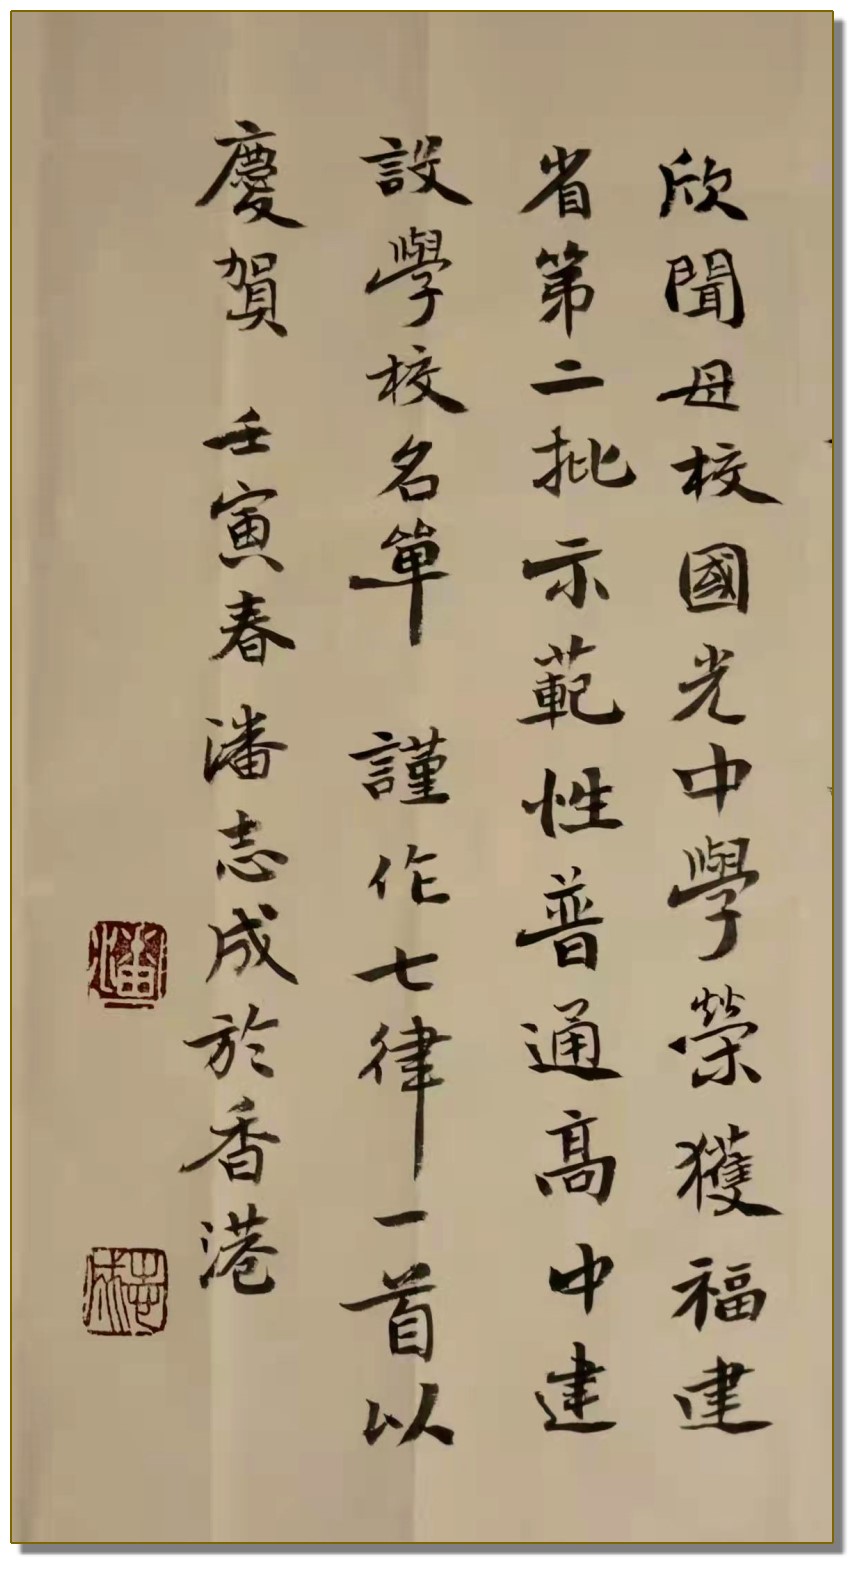 欣聞母校國光中學榮獲福建
省第二批示範性普通高中建
設學校名單 謹作七律一首以
慶賀 壬寅春潘志成於香港
潘
志成